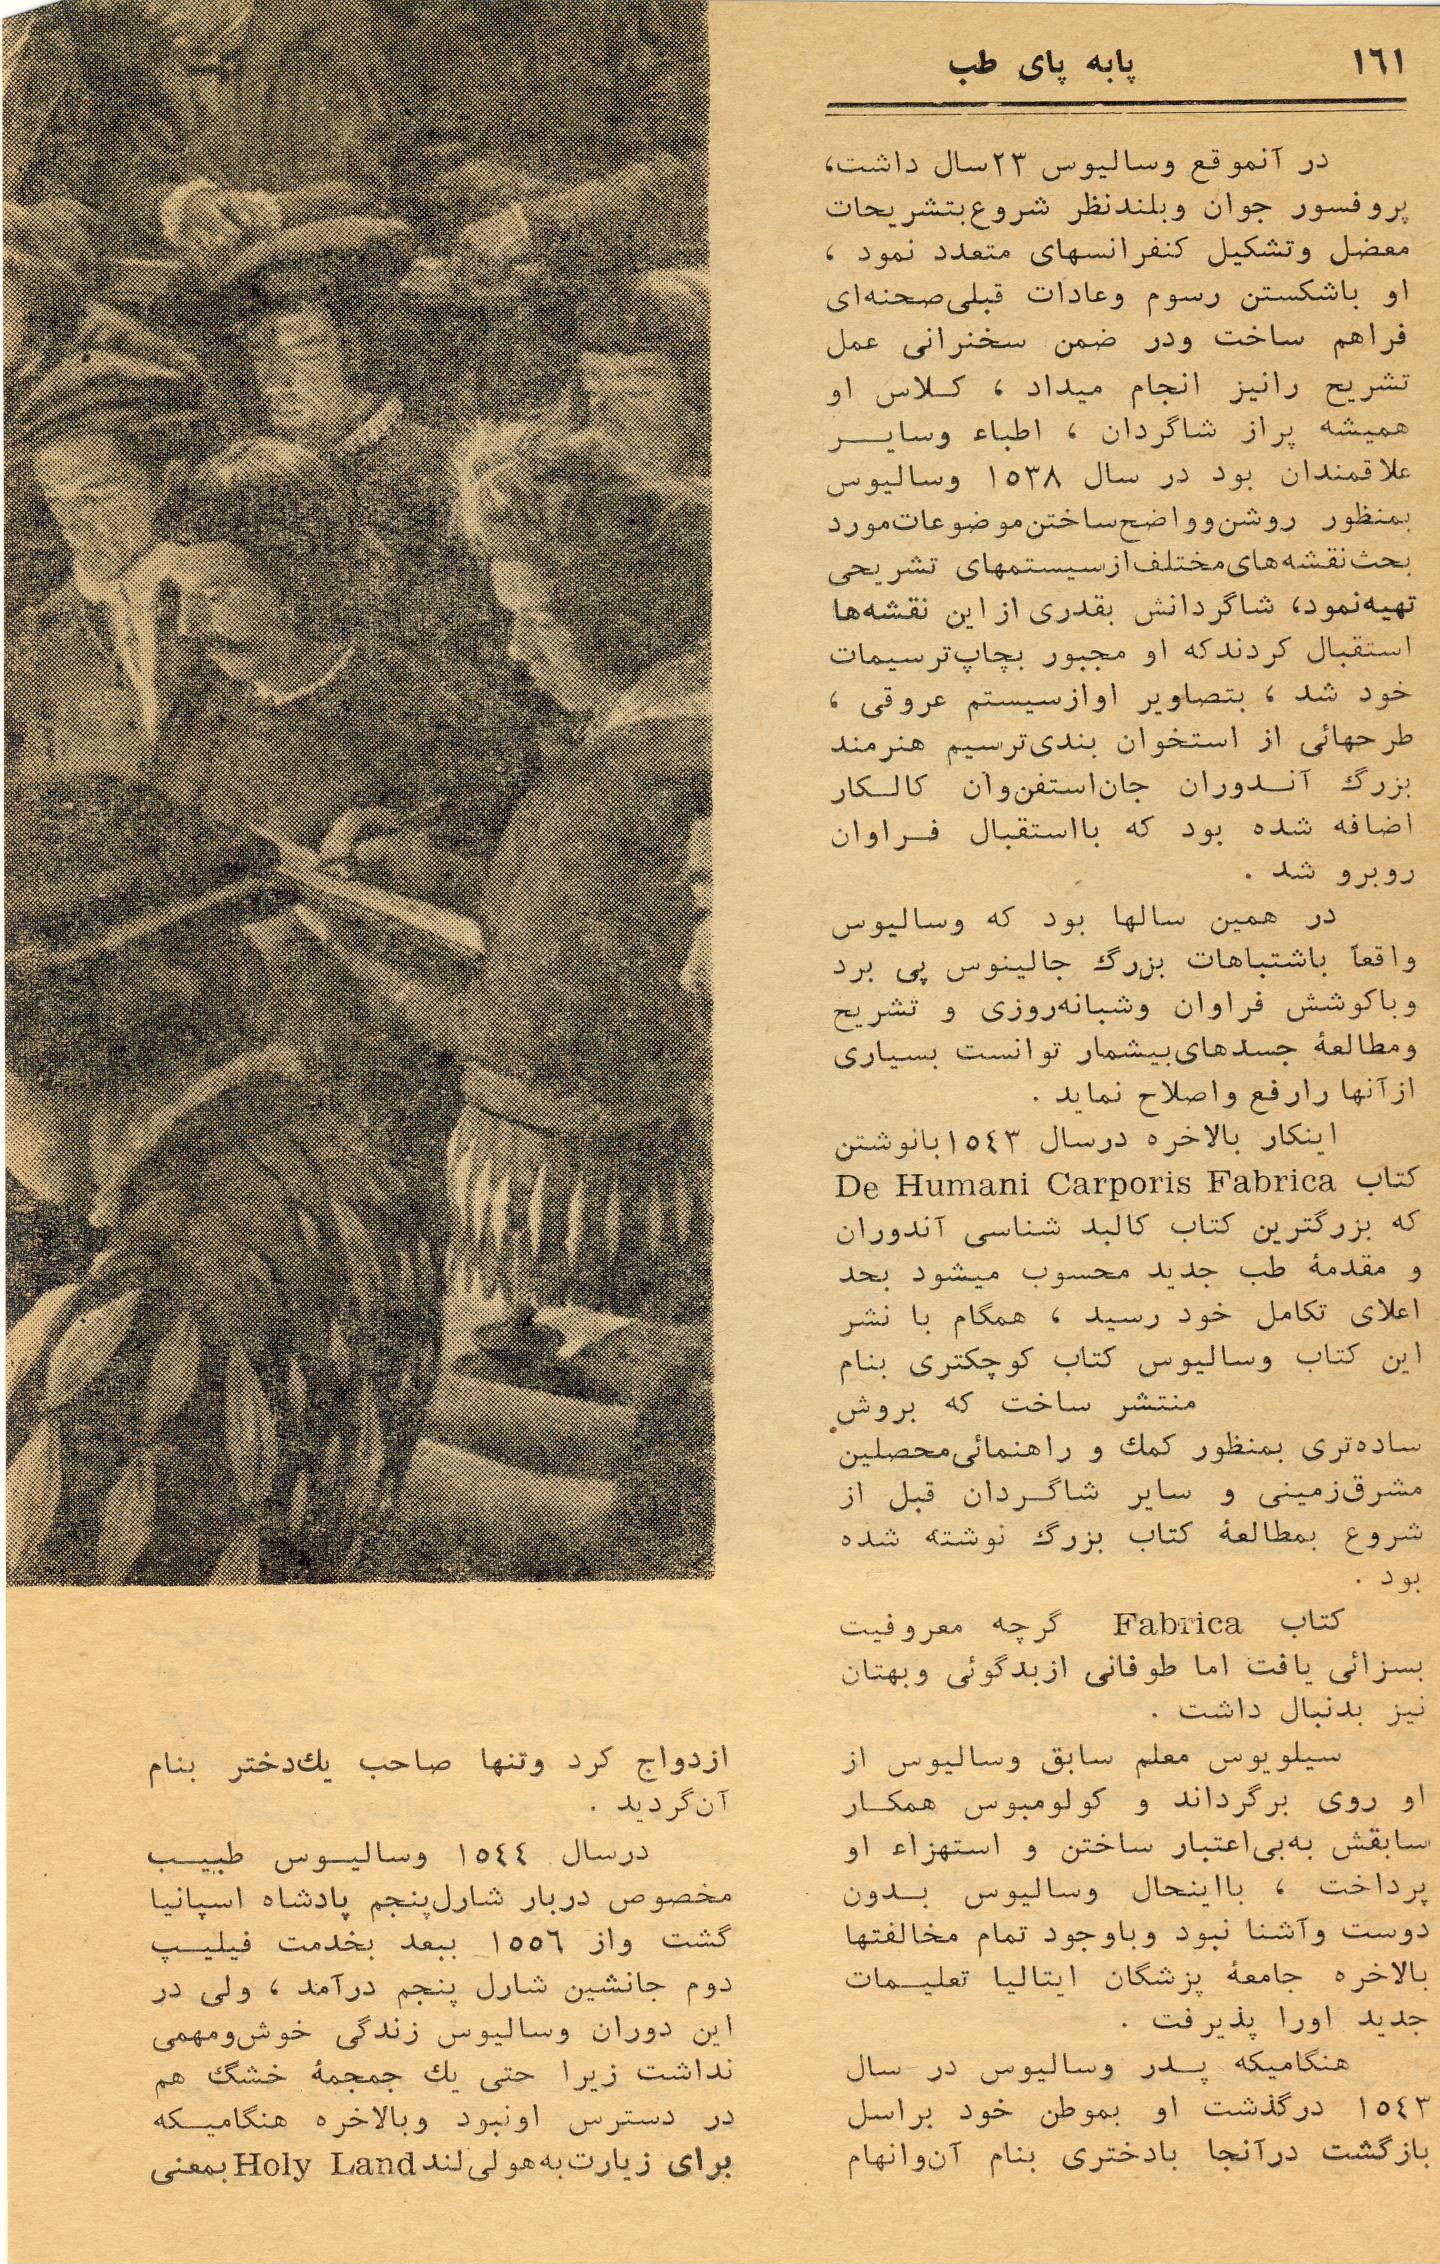 ١٦١
پابه پای طب
در آنموقع وسالیوس ٢٣سال داشت،
پروفسور جوان وبلندنظر شروع‌بتشریحات
معضل وتشکیل کنفرانسهای متعدد نمود ،
او باشکستن رسوم وعادات قبلی‌صحنه‌ای
فراهم ساخت ودر ضمن سخنرانی عمل
تشریح رانیز انجام میداد ، کـلاس او
همیشه پراز شاگردان ، اطباء وسایـــر
علاقمندان بود در سال ١٥٣٨ وسالیوس
بمنظور روشن‌وواضح‌ساختن‌موضوعات‌مورد
بحث‌نقشه‌های‌مختلف‌ازسیستمهای تشریحی
تهیه‌نمود، شاگردانش بقدری از این نقشه‌ها
استقبال کردندکه او مجبور بچاپ‌ترسیمات
خود شد ، بتصاویر اوازسیستم عروقی ،
طرحهائی از استخوان بندی‌ترسیم هنرمند
بزرگ آنـدوران جان‌استفن‌وان کالـکار
اضافه شده بود که بااستقبال فـراوان
روبرو شد .
در همین سالها بود که وسالیوس
واقعاً باشتباهات بزرگ جالینوس پی برد
وباکوشش فراوان وشبانه‌روزی و تشریح
ومطالعهٔ جسدهای‌بیشمار توانست بسیاری
ازآنها رارفع واصلاح نماید .
اینکار بالاخره درسال ١٥٤٣بانوشتن
کتاب De Humani Carporis Fabrica
که بزرگترین کتاب کالبد شناسی آندوران
و مقدمهٔ طب جدید محسوب میشود بحد
اعلای تکامل خود رسید ، همگام با نشر
این کتاب وسالیوس کتاب کوچکتری بنام
منتشر ساخت که بروش
ساده‌تری بمنظور کمك و راهنمائی‌محصلین
مشرق‌زمینی و سایر شاگـردان قبل از
شروع بمطالعهٔ کتاب بزرگ نوشته شده
بود .
کتاب Fabrica گرچه معروفیت
بسزائی یافت اما طوفانی ازبدگوئی وبهتان
نیز بدنبال داشت .
سیلویوس معلم سابق وسالیوس از
او روی برگرداند و کولومبوس همکـار
سابقش به‌بی‌اعتبار ساختن و استهزاء او
پرداخت ، بااینحال وسالیوس بـدون
دوست وآشنا نبود وباوجود تمام مخالفتها
بالاخره جامعهٔ پزشگان ایتالیا تعلیـمات
جدید اورا پذیرفت .
هنگامیکه پـدر وسالیوس در سال
١٥٤٣ درگذشت او بموطن خود براسل
بازگشت درآنجا بادختری بنام آن‌وانهام
ازدواج کرد وتنها صاحب یك‌دختر بنام
آن‌گردید .
درسال ١٥٤٤ وسالیـوس طبیـب
مخصوص دربار شارل‌پنجم پادشاه اسپانیا
گشت واز ١٥٥٦ ببعد بخدمت فیلیـپ
دوم جانشین شارل پنجم درآمد ، ولی در
این دوران وسالیوس زندگی خوش‌ومهمی
نداشت زیرا حتی یك جمجمهٔ خشگ هم
در دسترس اونبود وبالاخره هنگامیـکه
برای زیارت‌به‌هولی‌لند Holy Land بمعنی